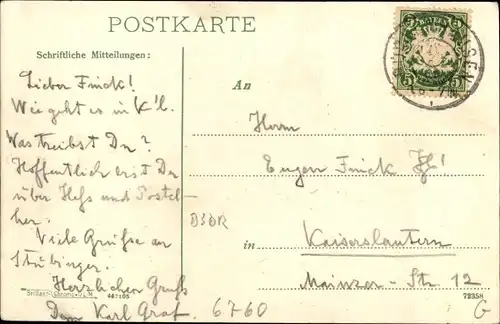 POSTKARTE
Schriftliche Mitteilungen:
Lieber Finck!
Wie geht es in K'l.
Was treibst Du?
Hoffentlich erst Du
über Hess und
her.
Viele Grüsse an
Stübinger.
Herzlichen Gruss
Dein Karl Graf.
447105
BAYERN
5 5
SEN
An
Herrn
Eugen Finck
in Kaiserslautern
Mainzer-Str. 12
B3DR
6760
72358
G